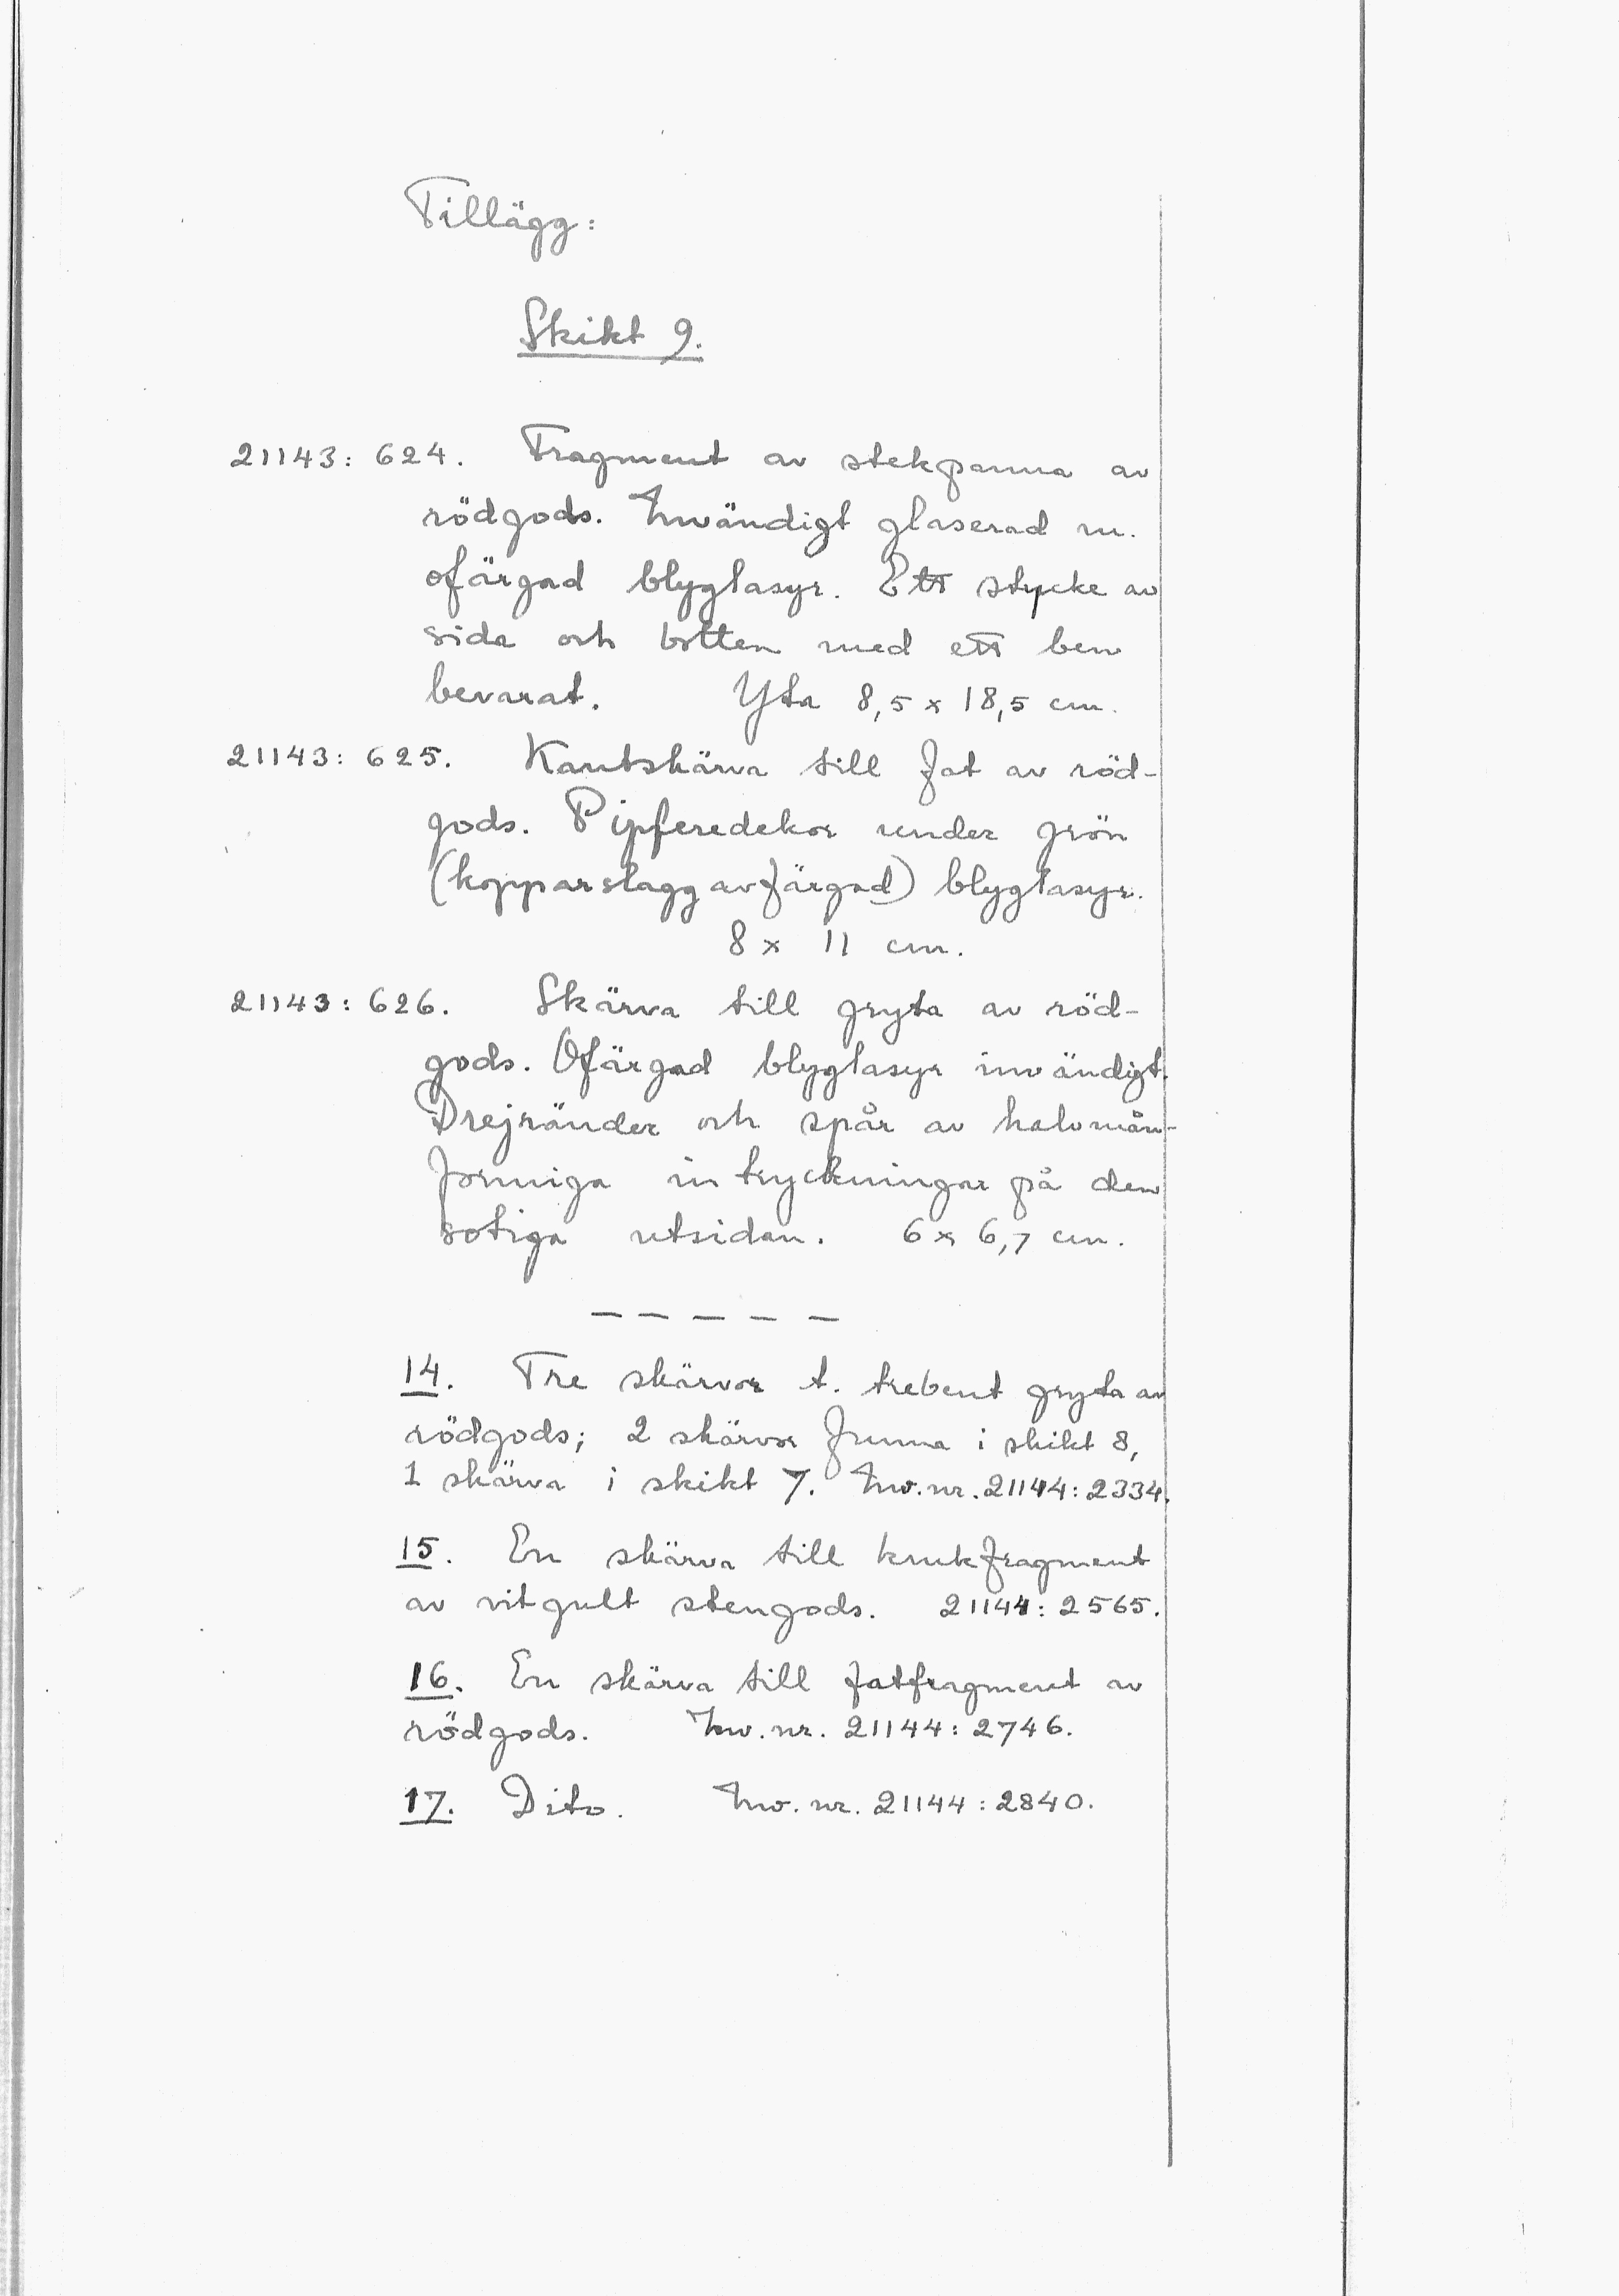 Tillägg:
Skikt 9.
21143: 624. Fragment av stekpanna av
rödgods. Invändigt glaserad m.
ofärgad blyglasyr. Ett stycke av
sida och botten med ett ben
bevarat. Yta 8,5 x 18,5 cm.
21143: 625. Kantskärva till fat av röd-
gods. Pipferedekor under grön
(kopparslaggavfärgad) blyglasyr.
8 x 11 cm.
21143: 626. Skärva till gryta av röd-
gods. Ofärgad blyglasyr invändigt.
Drejränder och spår av halvmån-
formiga intryckningar på den
sotiga utsidan. 6 x 6,7 cm.
— — — — —
14. Tre skärvor t. trebent gryta av
rödgods; 2 skärvor funna i skikt 8,
1 skärva i skikt 7. Inv.nr. 21144: 2334.
15. En skärva till krukfragment
av vitgult stengods. 21144: 2565.
16. En skärva till fatfragment av
rödgods. Inv.nr. 21144: 2746.
17. Dito. Inv.nr. 21144: 2840.